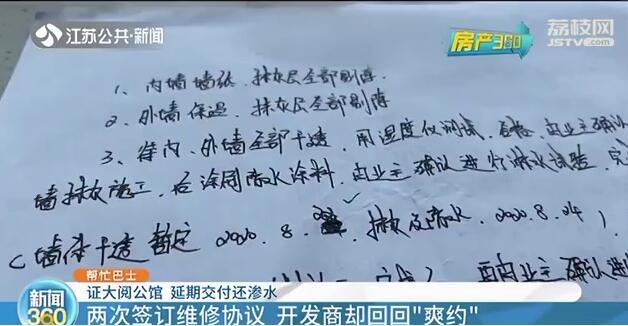 江苏公共·新闻
房产360
荔枝网
JSTV.com
1、内墙墙纸、抹灰层全部剔除
2、外墙保温、抹灰层全部剔除
3、待内、外墙全部干透,用湿度仪测试,由业主确认
墙抹灰施工,后涂刷防水涂料,由业主确认进行淋水试验,
(墙体干透暂定2020.8.,抹灰及防水,2020.8.24)
由业主确认进
帮忙巴士
证大阅公馆 延期交付还渗水
新闻360
两次签订维修协议 开发商却回回"爽约"